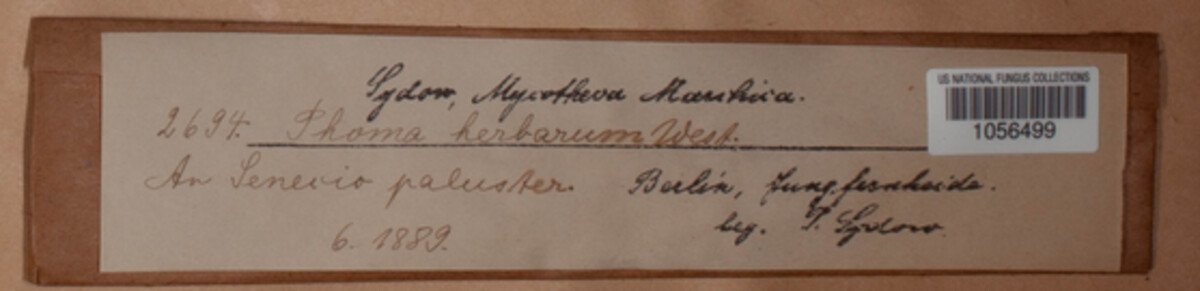 Sydow, Mycotheca Marchica.
US NATIONAL FUNGUS COLLECTIONS
1056499
2694. Phoma herbarum West.
An Senecio paluster. Berlin, Jungfernheide.
6. 1889. leg. P. Sydow.